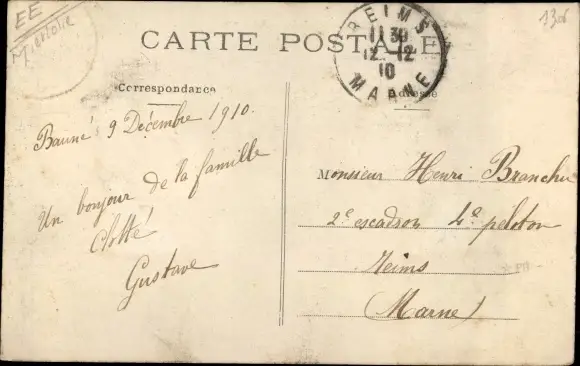 EE
1306
CARTE POSTALE
REIMS
11 30
12 - 12
10
MARNE
Correspondance
Adresse
Bauné 9 Décembre 1910.
Un bonjour de la famille
Clotté
Gustave
Monsieur Henri Branchu
2e escadron 4e peloton
Reims
(Marne)